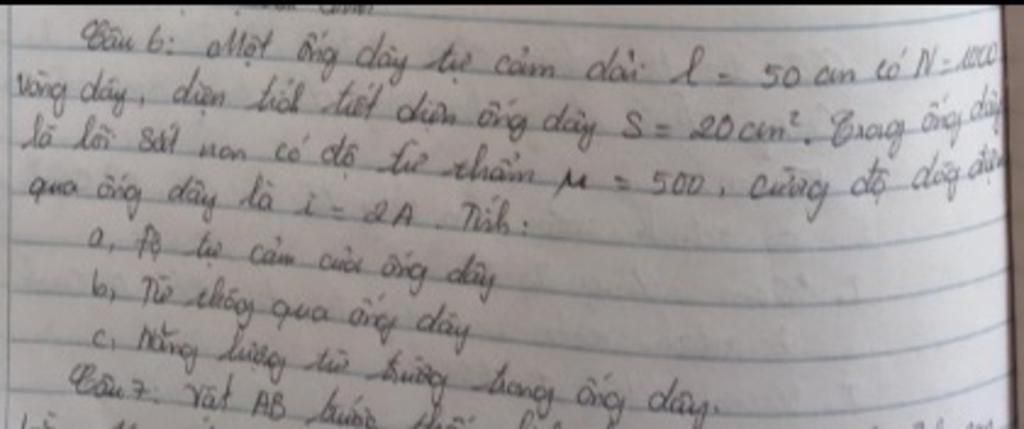 Câu 6: Một ống dây tự cảm dài l = 50 cm có N = 1000
vòng dây, diện tích tiết diện ống dây S = 20 cm². Trong ống dây
là lõi sắt non có độ từ thẩm μ = 500, cường độ dòng điện
qua ống dây là i = 2A. Tính:
a, Độ tự cảm của ống dây
b, Từ thông qua ống dây
c, Năng lượng từ trường trong ống dây.
Câu 7: Vật AB trước